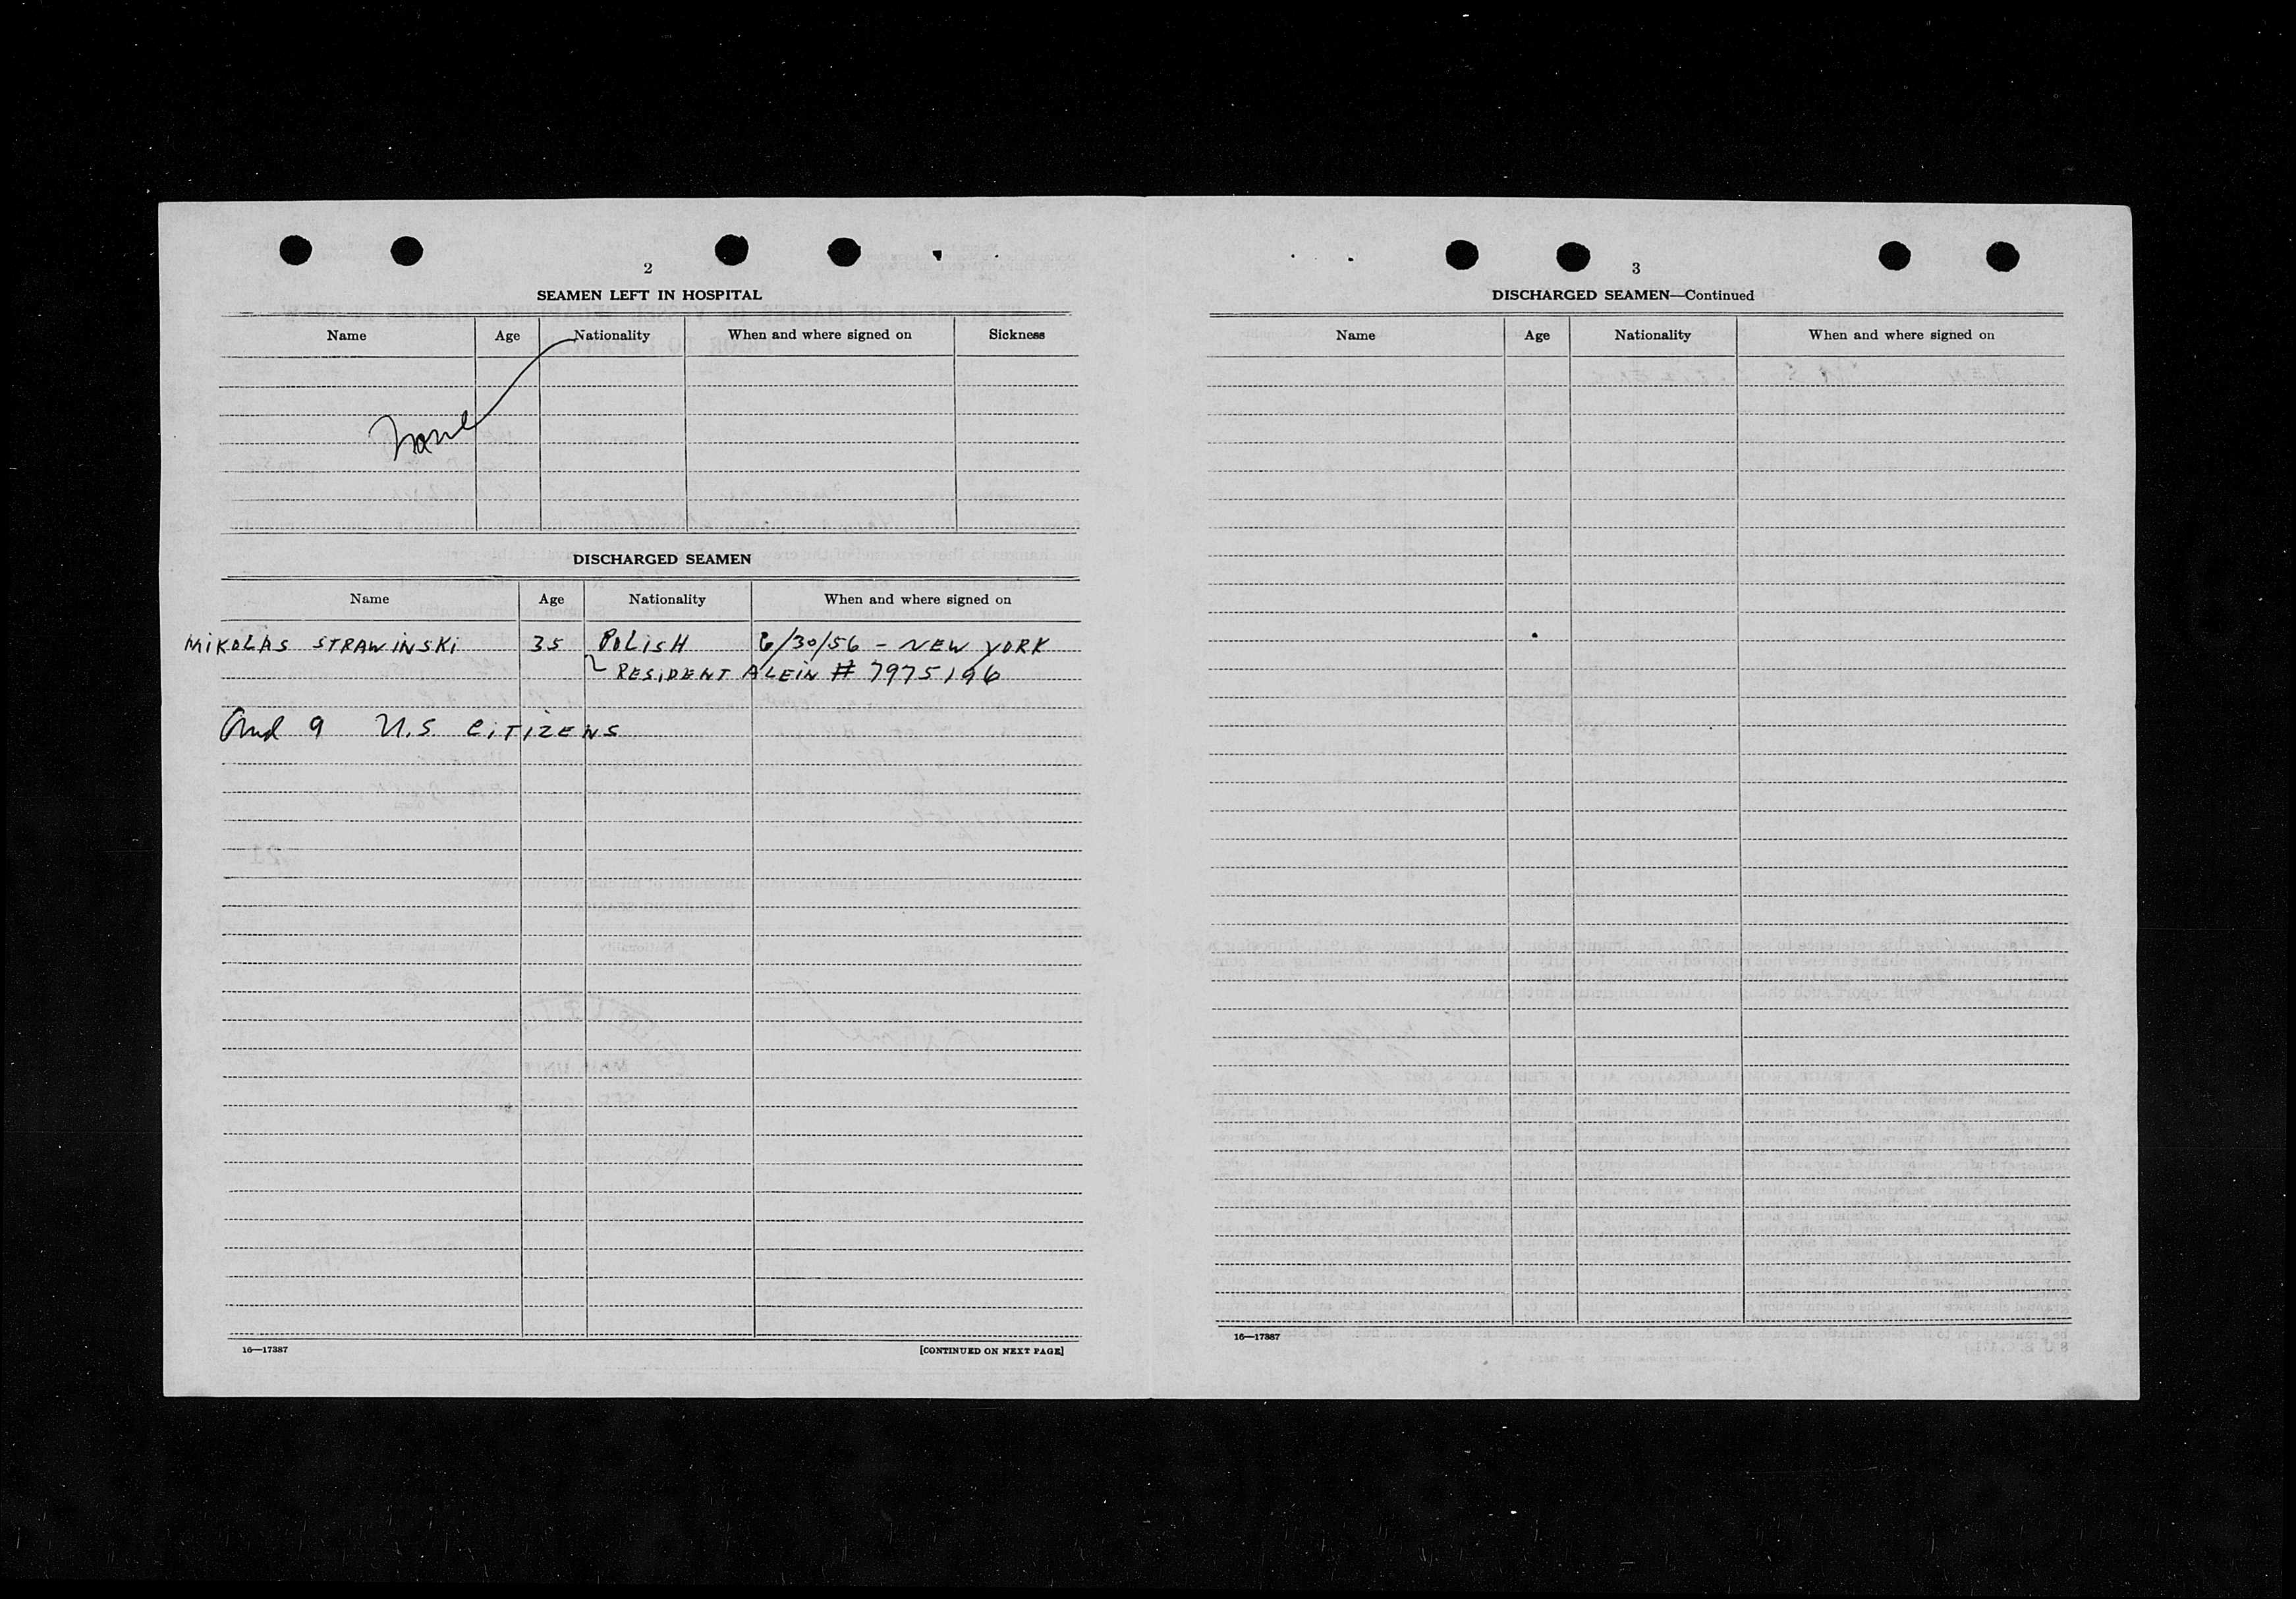 2
SEAMEN LEFT IN HOSPITAL
Name Age Nationality When and where signed on Sickness
None
DISCHARGED SEAMEN
Name Age Nationality When and where signed on
MIKOLAS STRAWINSKI 35 POLISH 6/30/56 - NEW YORK
RESIDENT ALEIN # 7975196
And 9 U.S CITIZENS
16—17387 [CONTINUED ON NEXT PAGE]
3
DISCHARGED SEAMEN—Continued
Name Age Nationality When and where signed on
16—17387